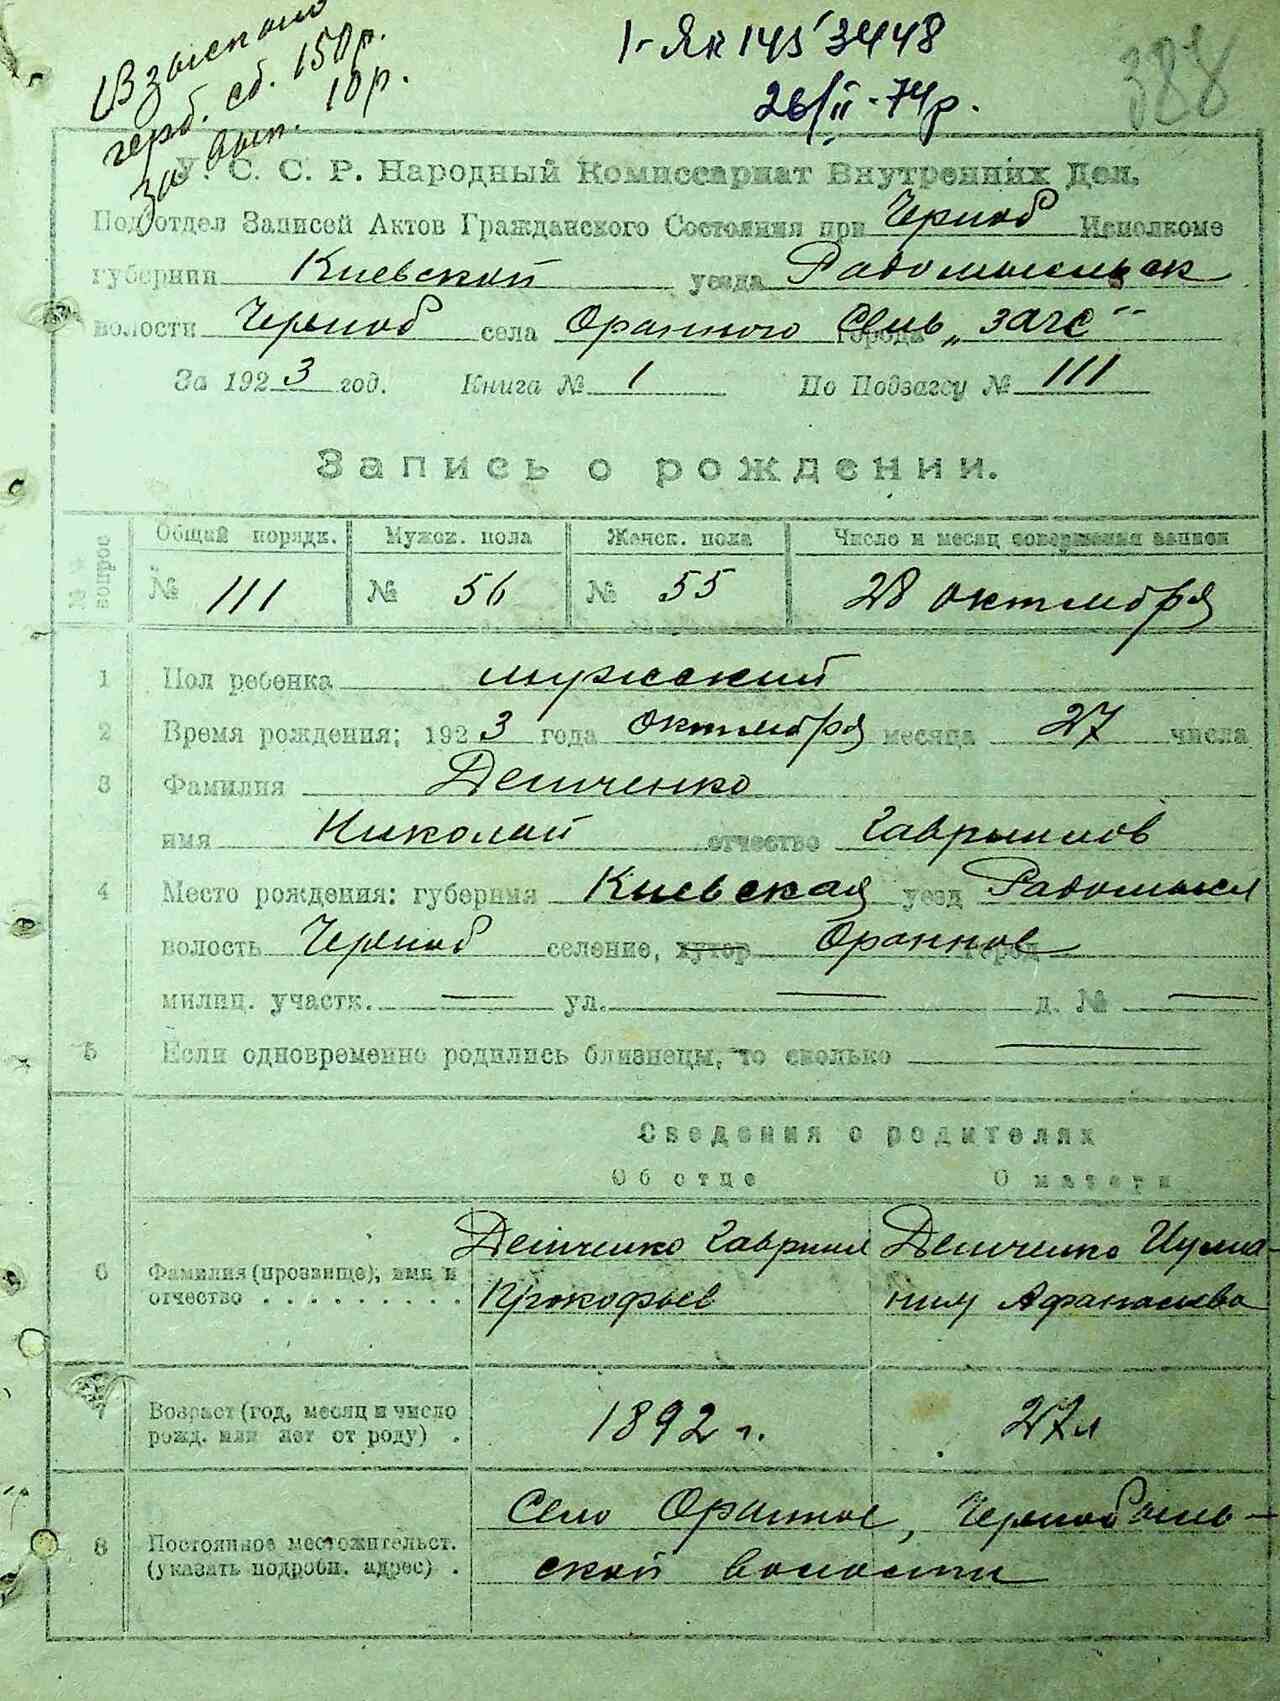 Взыскано
герб. сб. 150р.
за вып. 10р.
1-ЯК 145 3448
26/II-74р.
388
У. С. С. Р. Народный Комиссариат Внутренних Дел.
Подотдел Записей Актов Гражданского Состояния при Черноб Исполкоме
губернии Киевской уезда Радомысльск
волости Черноб села Оранного города Сель „загс“
За 1923 год. Книга № 1 По Подзагсу № 111
Запись о рождении.
№ вопрос Общий порядк. Мужск. пола Женск. пола Число и месяц совершения записи
№ 111 № 56 № 55 28 октября
1 Пол ребенка мужский
2 Время рождения; 1923 года октября месяца 27 числа
3 Фамилия Демченко
имя Николай отчество Гаврилов
4 Место рождения: губерния Киевская уезд Радомысл
волость Черноб селение, хутор Оранное город
милиц. участк. — ул. — д. № —
5 Если одновременно родились близнецы, то сколько —
Сведения о родителях
Об отце О матери
6 Фамилия (прозвище), имя и отчество Демченко Гавриил Демченко
Прокофьев Афанасиева
7 Возраст (год, месяц и число
рожд. или лет от роду) . 1892 г. 27 л
8 Постоянное местожительст.
(указать подробн. адрес) . Село Оранное, Чернобыль-
ской волости